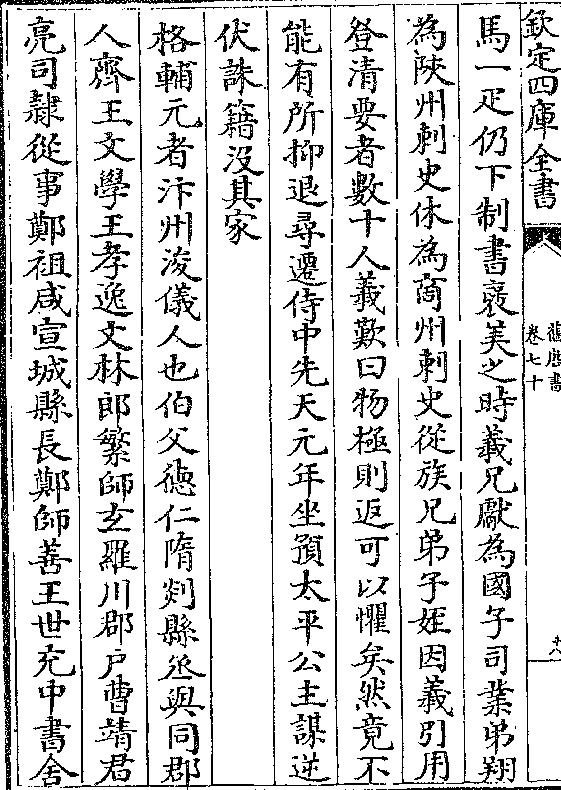 欽定四庫全書
舊唐書
卷七十
十八
馬一疋仍下制書襃美之時義兄獻為國子司業弟翔
為陜州刺史休為商州刺史從族兄弟子姪因義引用
登清要者數十人義歎曰物極則返可以懼矣然竟不
能有所抑退尋遷侍中先天元年坐預太平公主謀逆
伏誅籍没其家
格輔元者汴州浚儀人也伯父徳仁隋剡縣丞與同郡
人齊王文學王孝逸文林郎繁師玄羅川郡户曹靖君
亮司隷從事鄭祖咸宣城縣長鄭師善王世充中書舍